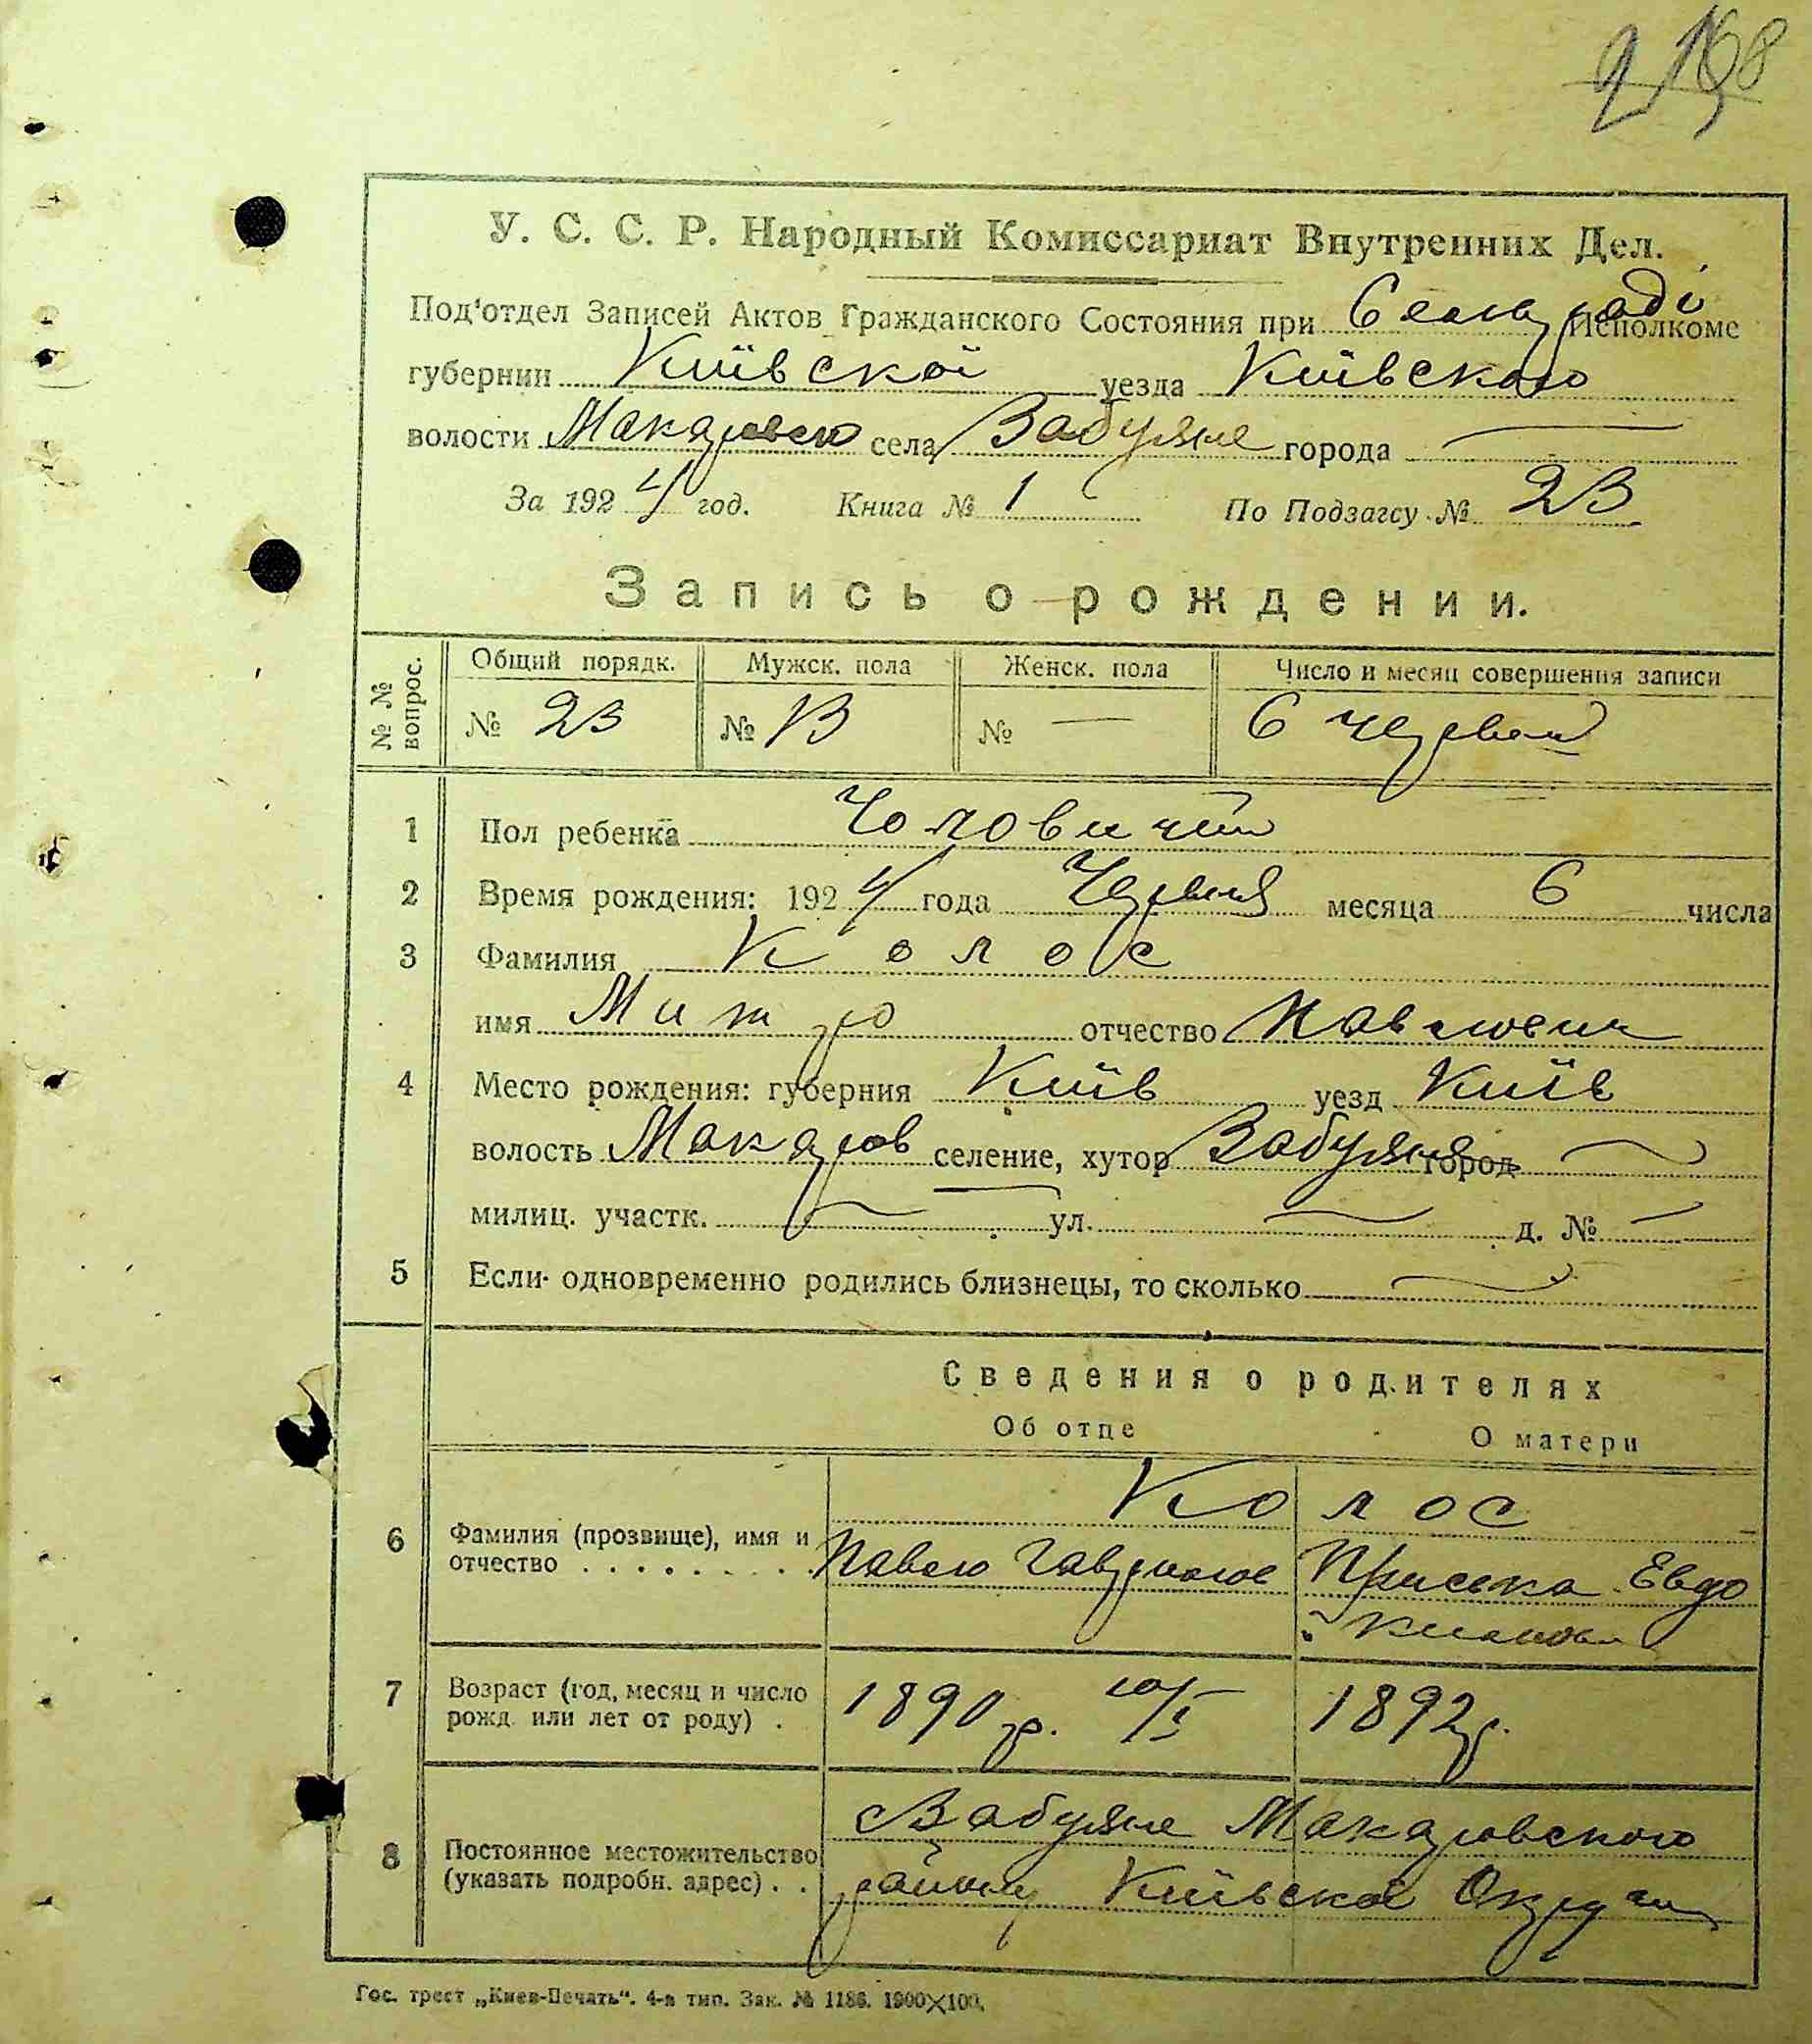 198
У. С. С. Р. Народный Комиссариат Внутренних Дел.
Под'отдел Записей Актов Гражданского Состояния при Сельраді Исполкоме
губернии Київскої уезда Київского
волости Макаровско села Забуяне города —
За 1924 год. Книга № 1 По Подзагсу № 23
Запись о рождении.
№ № вопрос. Общий порядк. Мужск. пола Женск. пола Число и месяц совершения записи
№ 23 № 13 № — 6 червен
1 Пол ребенка Чоловичий
2 Время рождения: 1924 года Червня месяца 6 числа
3 Фамилия Колос
имя Митро отчество Павлович
4 Место рождения: губерния Київ уезд Київ
волость Макаров селение, хутор Забуяня город —
милиц. участк. — ул. — д. № —
5 Если одновременно родились близнецы, то сколько —
Сведения о родителях
Об отце О матери
6 Фамилия (прозвище), имя и отчество . . . . . . . . Колос
Павло Гаврилов Приська Евдо
кимовн
7 Возраст (год, месяц и число рожд. или лет от роду) . 1890 р. 10/I 1892 р.
8 Постоянное местожительство (указать подробн. адрес) . . Забуяне Макаровского
району Київскої Округи
Гос. трест „Киев-Печать“. 4-я тип. Зак. № 1186. 1900×100.